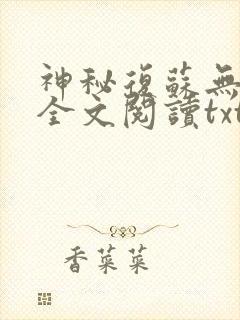 神秘復蘇無
全文閱讀txt
香菜菜